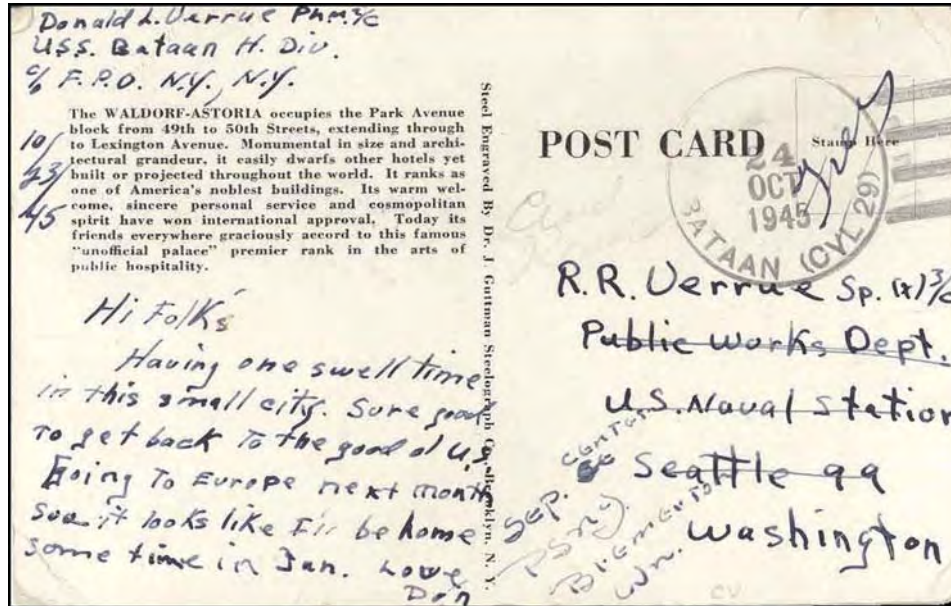 Donald L. Verrue PhM 3/c
U.S.S. Bataan H. Div.
c/o F.P.O. N.Y., N.Y.
10/
23/
45
The WALDORF-ASTORIA occupies the Park Avenue
block from 49th to 50th Streets, extending through
to Lexington Avenue. Monumental in size and archi-
tectural grandeur, it easily dwarfs other hotels yet
built or projected throughout the world. It ranks as
one of America's noblest buildings. Its warm wel-
come, sincere personal service and cosmopolitan
spirit have won international approval. Today its
friends everywhere graciously accord to this famous
"unofficial palace" premier rank in the arts of
public hospitality.
Hi Folk's
Having one swell time
in this small city. Sure good
to get back to the good ol U.S.
Going to Europe next month
soo it looks like I'll be home
some time in Jan. Love
Don
Steel Engraved By Dr. J. Guttman Steelograph Co., Brooklyn, N. Y.
POST CARD
Stamp Here
Free
24
OCT
1945
BATAAN (CVL 29)
R.R. Verrue Sp. (x) 3/c
Public Works Dept.
U.S. Naval Station
Seattle 99
Washington
Sep. Center
PSNY.
Bremerton
Wn.